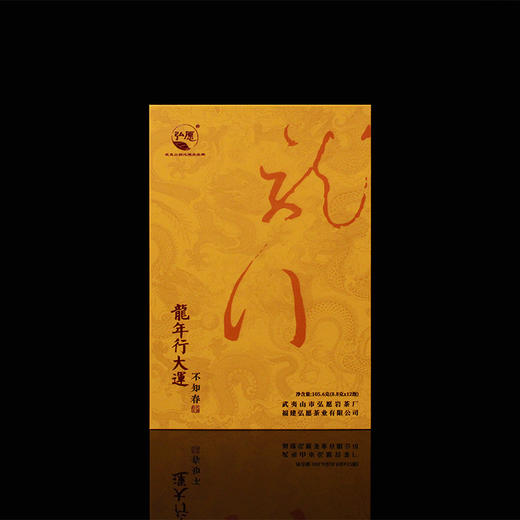 弘愿
®
龍行
龍年行大運
不知春
净含量:105.6克(8.8克x12泡)
武夷山市弘愿岩茶厂
福建弘愿茶业有限公司